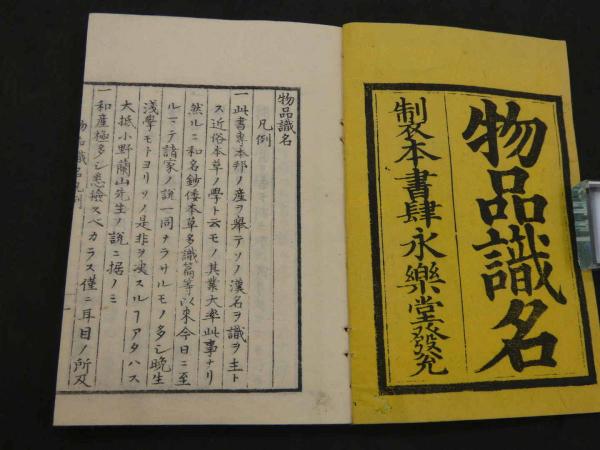 物品識名
製本書肆永樂堂發兌
物品識名
凡例
一此書專本邦ノ産ヲ擧テソノ漢名ヲ識ヲ主ト
ス近俗本草ノ學ト云モノ其業大率此事ナリ
然ルニ和名鈔倭本草多識篇等以來今日ニ至
ルマテ諸家ノ説一同ナラサルモノ多シ晩生
淺學モトヨリソノ是非ヲ決スルヿアタハス
大抵小野蘭山先生ノ説ニ据ノミ
一和産極多シ悉檢スベカラス僅ニ耳目ノ所及
物品識名凡例